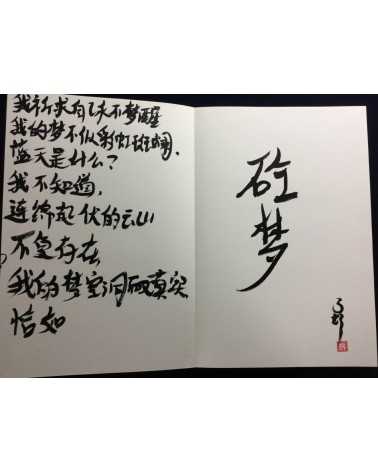 我祈求自己永不梦醒
我的梦不似彩虹斑斓,
蓝天是什么?
我不知道,
连绵起伏的云山
不复存在
我的梦空洞而真实
恰如
梦